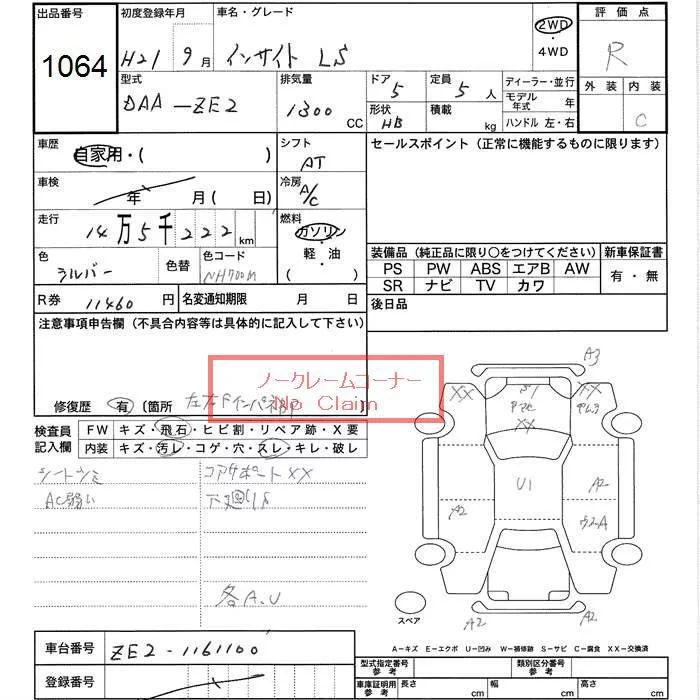 出品番号 初度登録年月 車名・グレード 2WD 評価点
1064 H21 9月 インサイト LS ・ 4WD R
型式 排気量 ドア 定員 ディーラー・並行 外装 内装
DAA-ZE2 1300 CC 5 5人 モデル年式 年 C
形状 HB 積載 kg ハンドル 左・右
車歴 自家用・( ) シフト AT セールスポイント（正常に機能するものに限ります）
車検 年 月( 日) 冷房 A/C
走行 14万5千222km 燃料 ガソリン・軽・油 ( )
色 シルバー 色替 色コード NH700M
装備品（純正品に限り○をつけてください） 新車保証書
PS PW ABS エアB AW 有・無
SR ナビ TV カワ
R券 11460円 名変通知期限 月 日 後日品
注意事項申告欄（不具合内容等は具体的に記入して下さい）
ノークレームコーナー
No Claim
修復歴 有 〔箇所 左右Fインパネ
検査員記入欄 FW キズ・飛石・ヒビ割・リペア跡・X要
内装 キズ・汚レ・コゲ・穴・スレ・キレ・破レ
シートシミ コアサポートXX
AC弱い 下廻りS
各A.U
A3
XX
S1
XX
U1
A2
A2
A2
A2
スペア
A-キズ E-エクボ U-凹み W-補修跡 S-サビ C-腐食 XX-交換済
車台番号 ZE2-1161100
型式指定番号 参考 類別区分番号 参考
登録番号
車庫証明用 参考 長さ cm 幅 cm 高さ cm